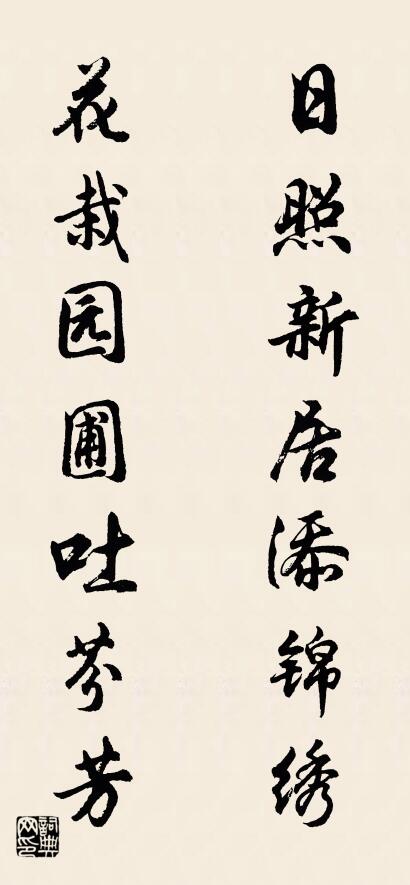 日照新居添锦绣
花栽园圃吐芬芳
词典网印